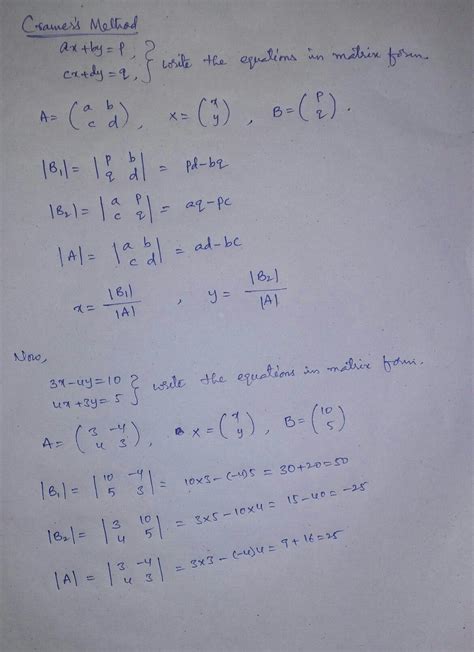 Cramer's Method
ax+by=p, } write the equations in matrix form.
cx+dy=q,
A= (a b
c d), X= (x
y), B= (p
q).
|B₁|= |p b
q d| = pd-bq
|B₂|= |a p
c q| = aq-pc
|A|= |a b
c d| = ad-bc
x= |B₁|/|A| , y= |B₂|/|A|
Now,
3x-4y=10 } write the equations in matrix form.
4x+3y=5
A= (3 -4
4 3), X= (x
y), B= (10
5)
|B₁|= |10 -4
5 3| = 10x3-(-4)5 = 30+20=50
|B₂|= |3 10
4 5| = 3x5-10x4 = 15-40=-25
|A|= |3 -4
4 3| = 3x3-(-4)4=9+16=25